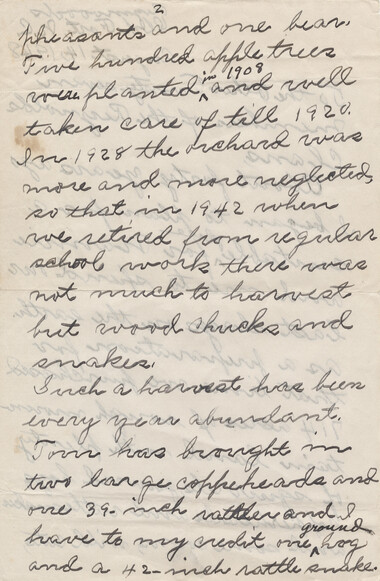 2
pheasants and one bear.
Five hundred apple trees
were planted in 1908 and well
taken care of till 1920.
In 1928 the orchard was
more and more neglected,
so that in 1942 when
we retired from regular
school work there was
not much to harvest
but wood chucks and
snakes.
Such a harvest has been
every year abundant.
Tom has brought in
two large coppeheads and
one 39-inch rattler and I
have to my credit one ground hog
and a 42-inch rattle snake.